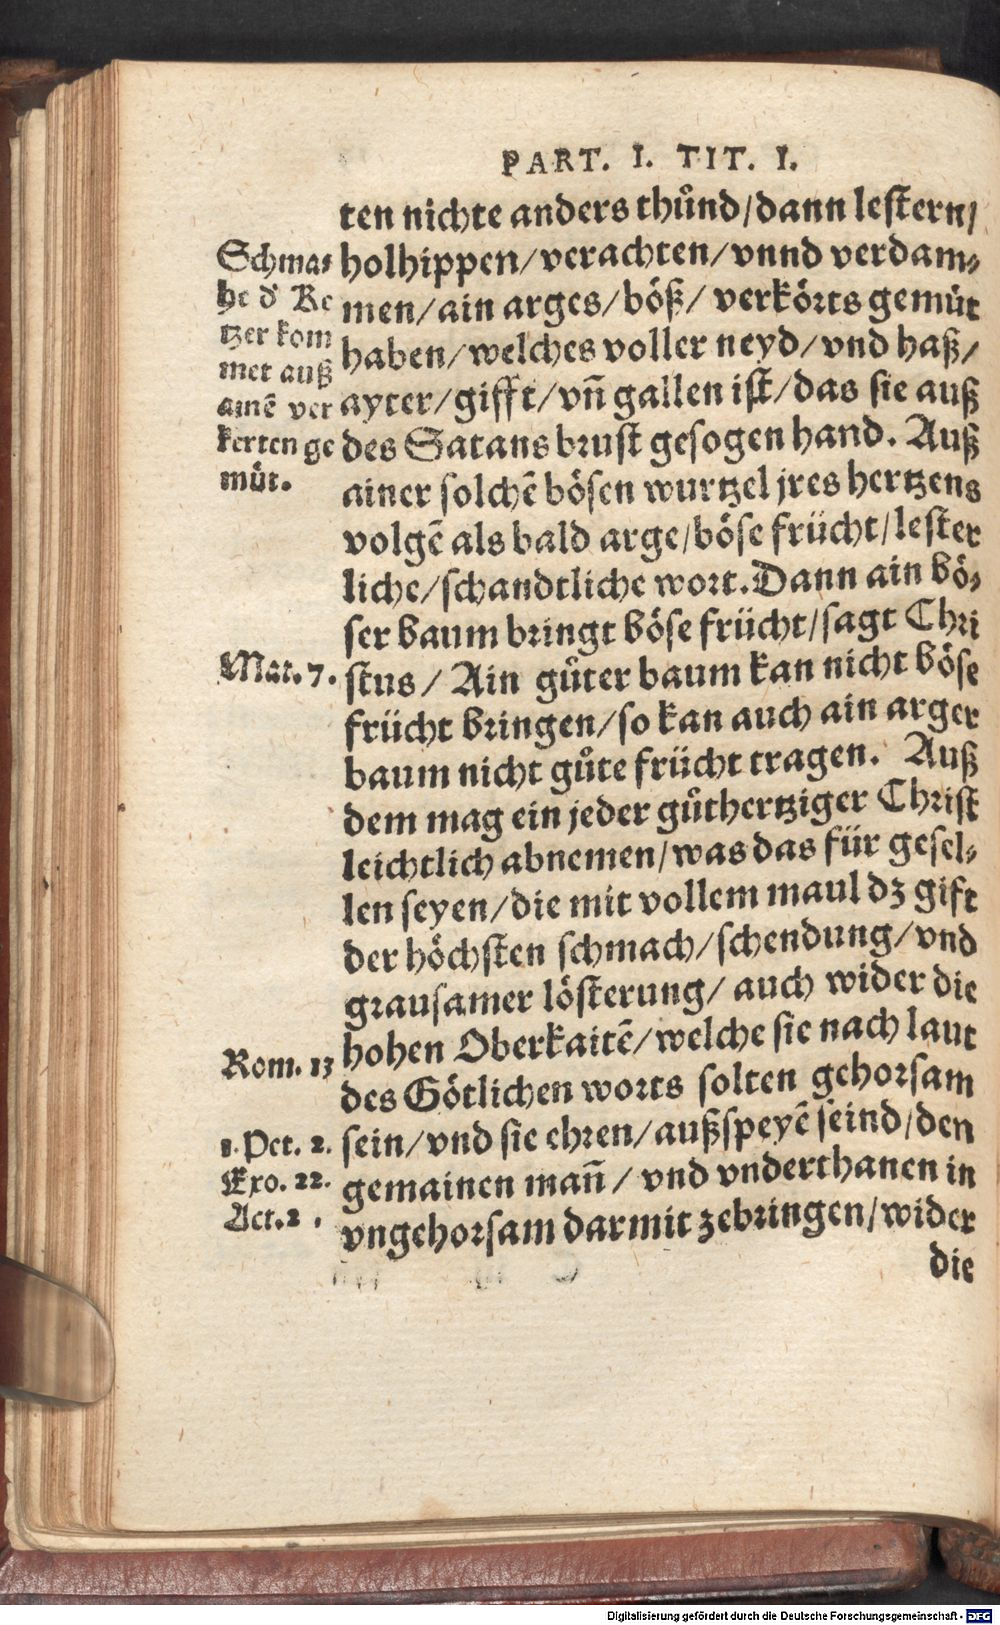 PART. I. TIT. I.
ten nichte anders thůnd/dann lestern/
holhippen/verachten/vnnd verdam⸗
men/ain arges/böß/ verkörts gemüt
haben/welches voller neyd/vnd haß/
ayter/gifft/vñ gallen ist/das sie auß
des Satans brust gesogen hand. Auß
ainer solchẽ bösen wurtzel jres hertzens
volgẽ als bald arge/böse frücht/lester
liche/schandtliche wort. Dann ain bö⸗
ser baum bringt böse frücht/sagt Chri
stus/ Ain gůter baum kan nicht böse
frücht bringen/so kan auch ain arger
baum nicht gůte frücht tragen. Auß
dem mag ein jeder gůthertziger Christ
leichtlich abnemen/was das für gesel⸗
len seyen/die mit vollem maul dz gift
der höchsten schmach/schendung/vnd
grausamer lösterung/ auch wider die
hohen Oberkaitẽ/welche sie nach laut
des Götlichen worts solten gehorsam
sein/vnd sie ehren/außspeyẽ seind/den
gemainen mañ/ vnd vnderthanen in
vngehorsam darmit zebringen/wider
die
Schma⸗
he d' Ke
tzer kom
met auß
ainẽ ver
kerten ge
müt.
Mat. 7.
Rom. 13
1. Pet. 2.
Exo. 22.
Act. 2.
Digitalisierung gefördert durch die Deutsche Forschungsgemeinschaft - DFG